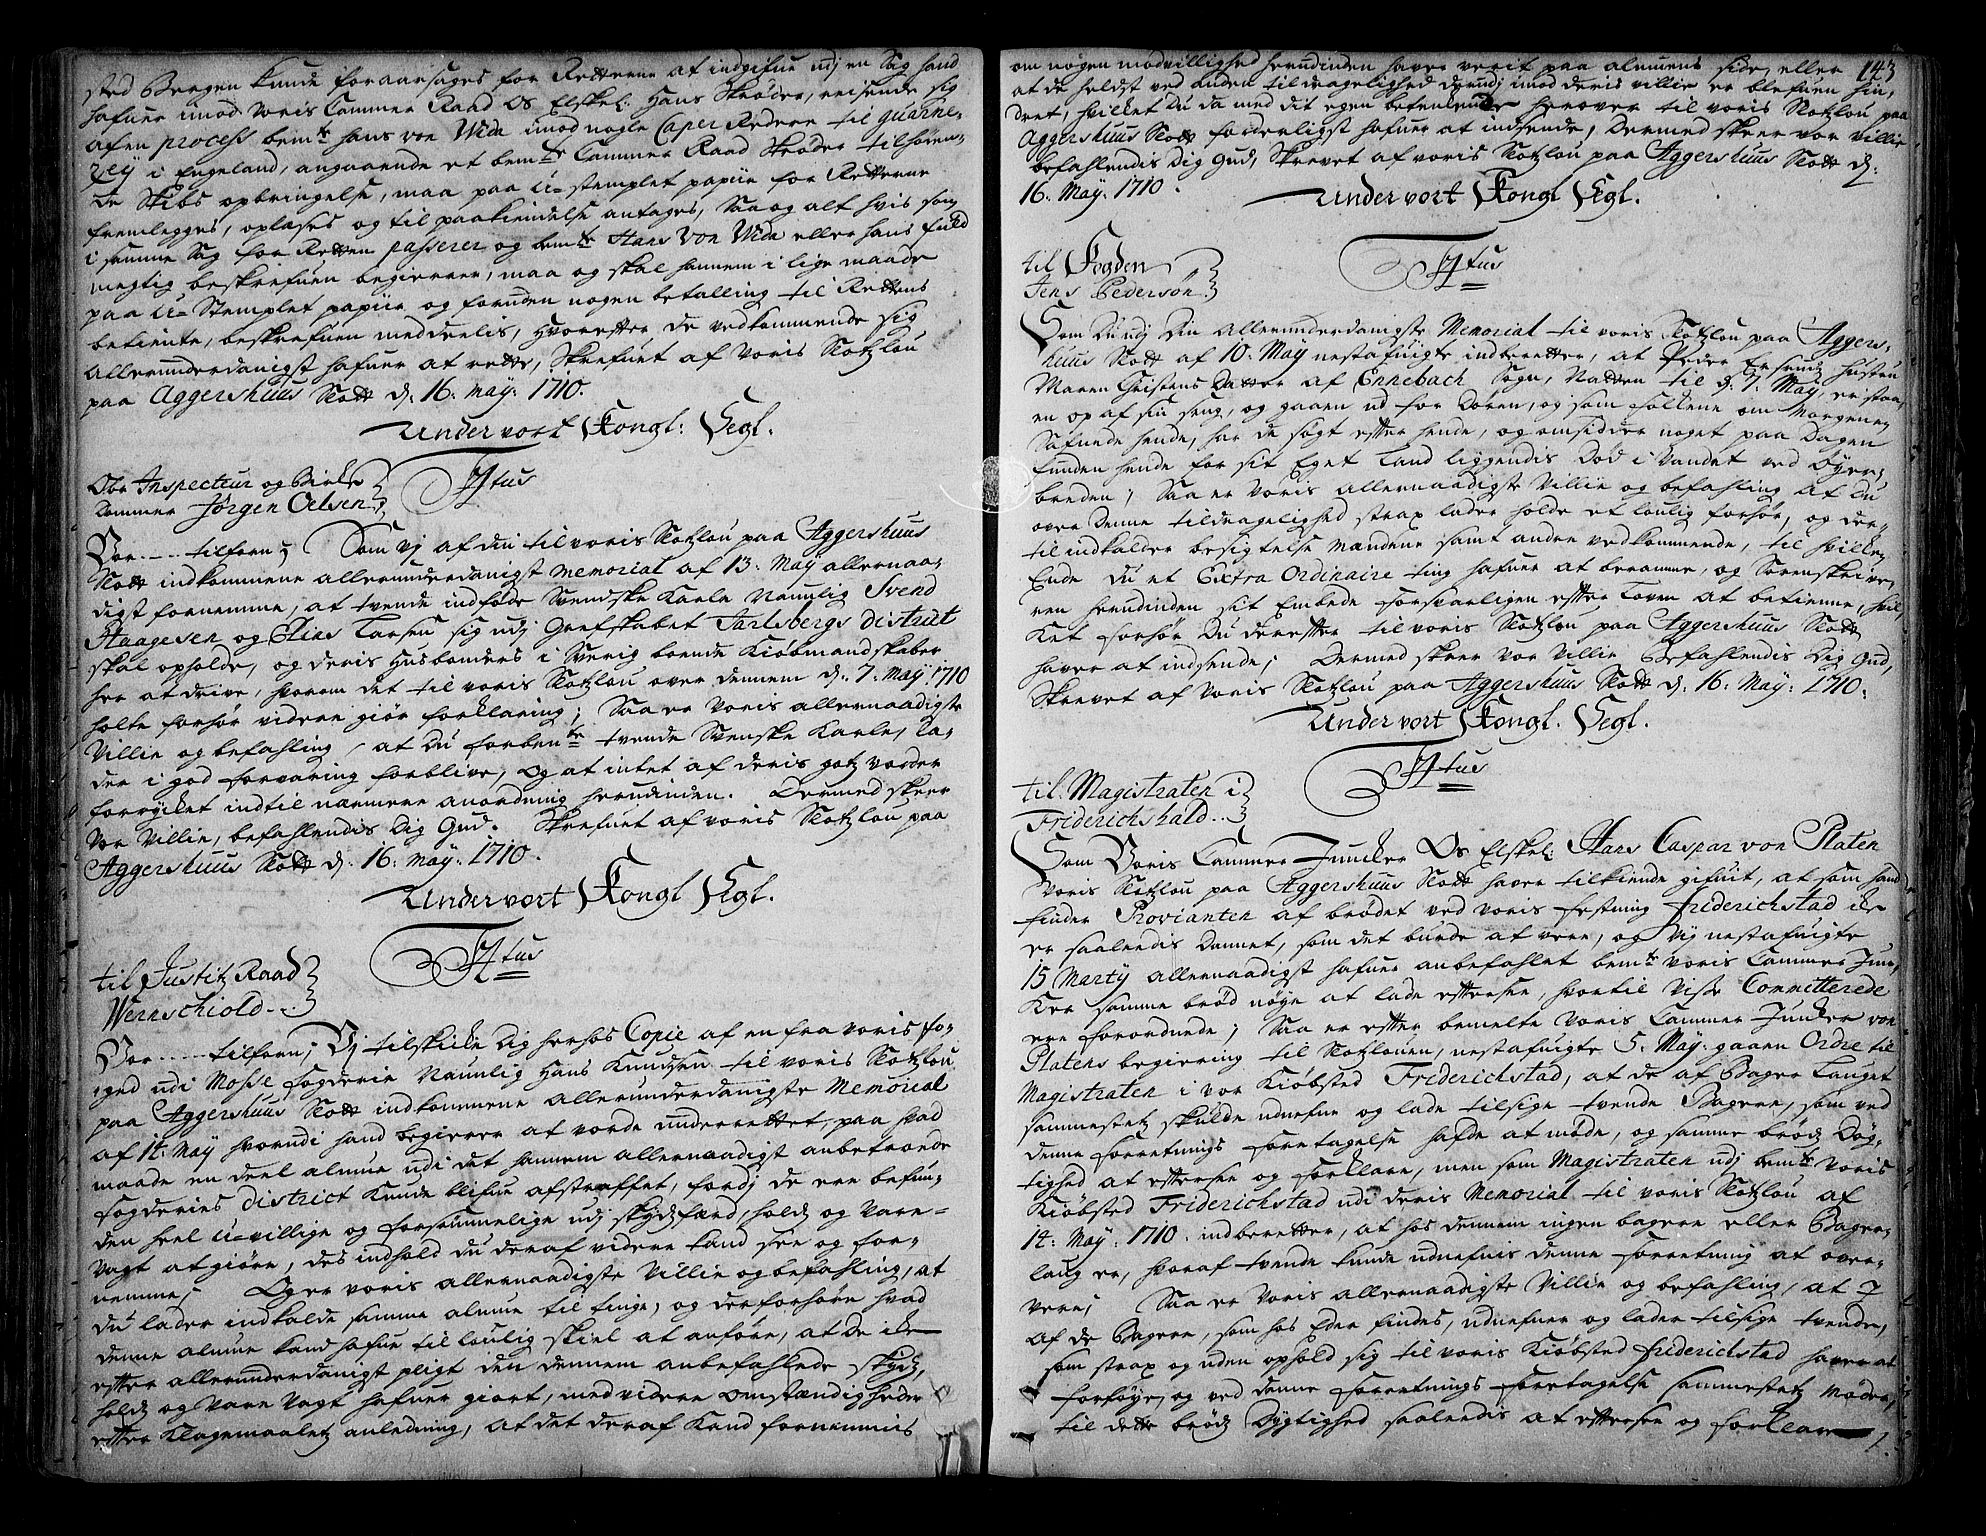 sted Bergen kunde foraarsages for Retterne at indgifue udj en Sag hand
hafuer imod Voris Cammer Raad Os Elskel: Hans Skrøder, reisende sig
af en process bemte hans von Wida imod nogle Caper Redere til guarne-
zey i Engeland, angaaende et bemte Cammer Raad Skrøder tilhøren-
de Skibs opbringelse, maa paa U-stemplet papiir for Retterne
fremlegges, oplæses og til paakiendelse antages, Saa og alt hvis som
i samme Sag for Retten passerer og bemte Hans Von Wida eller hans fuld
megtig beskrefuen begierer, maa og skal hannem i lige maade
paa U-Stemplet papiir og foruden nogen betalling til Rettens
betiente, beskrefuen meddeelis, hvorefter de vedkommende sig
allerunderdanigst hafuer at rette, Skrefuet af Voris Slotzlou
paa Aggershuus Slott d: 16. may. 1710.
Under vort Kongl: Segl.
Obr Inspecteur og Birke
dommer Jørgen Oelsen
Htus
Vor ---- tilforn; Som vj af din til voris Slotzlou paa Aggershuus
Slott indkommene allerunderdanigst memorial af 13. May allernaa-
digst fornemme, at tvende indfødde Svendske Karle Naunlig Svend
Haagesen og Elias Larsen sig udj Grefskabet Jarlsbergs district
skal opholde, og deris Husbonders i Sverig boende Kiøbmandskaber
her at drive, hvorom det til voris Slotzlou over dennem d. 7. May 1710
holte forhør videre giør forklaring; Saa er Voris allernaadigste
Villie og befahling, at Du forbente tvende Svenske Karle, la-
der i god forvaring forblive, og at intet af deris gotz vorder
forrycket indtil nærmere anordning herudinden. Dermed skeer
Vor Villie, befahlendis Dig Gud. Skrefuet af voris Slotzlou paa
Aggershuus Slott d. 16. may. 1710.
Under vort Kongl Segl.
Htus
til Justitz Raad
Wernschiold
Vor ---- tilforn; Vj tilskicke Dig herhos Copie af en fra voris fo-
iged udi Mosse fogderie Naunlig Hans Knudsen til voris Slotzlou
paa Aggershuus Slott indkommene allerunderdanigste Memorial
af 14. May hvorudi hand begierer at vorde underrettet, paa hvad
maade en deel almue udi det hannem allernaadigst anbetroede
fogderies district kunde blifue afstraffet, fordj de ere befun-
den heel U-villige og forsømmelige udj skydsfærd, hold og Vare-
Vagt at giøre, des indhold du deraf videre kand see og for-
nemme; Og er voris allernaadigste Villie og befahling, at
du lader indkalde samme almue til tinge, og der forhøre hvad
denne almue kand hafue til loulig skiel at anføre, at de icke
efter allerunderdanigst pligt den dennem anbefahlede skyds,
hold og Vare Vagt hafuer giort, med videre omstændigheder
efter Klagemaaletz anledning, at det deraf kand fornemmis
143
om nogen modvillighed herudinden hafver verit paa almuens side, eller
at de heldst ved anden tildragelighed derudj imod deris villie er blefuen hin-
dret, hvilket du da med dit egen betenkende herover til voris Slotzlou paa
Aggershuus Slott forderligst hafuer at indsende, dermed skeer vor Villie
befahlendis Dig Gud, Skrevet af voris Slotzlou paa Aggershuus Slott d:
16. May. 1710.
Under vort Kongl Segl.
til Fogden
Jens Pedersøn
Htus
Som Du udj din allerunderdanigste Memorial til voris Slotzlou paa Aggers-
huus Slott af 10. May nestafuigte indberetter, at Peder Ersens hustru
Maren Christens Datter af Ennebach Sogn, Natten til d. 7. May, er staa-
en op af sin seng, og gaaen ud for døren, og som folkene om Morgenen
Safnede hende, har de søgt efter hende, og omsider noget paa dagen
funden hende for sit Eget land liggendis død i Vandet ved Øyer-
breden; Saa er Voris allernaadigste Villie og befahling at du
over denne tildragelighed strax lader holde et loulig forhør, og der-
til indkalder besigtelse mændene samt andre vedkommende, til hvilken
Ende du et Extra Ordinaire ting hafuer at beramme, og Sorenskrive-
ren herudinden sit Embede forsvarligen efter Loven at betienne, hvil-
ket forhør du derefter til voris Slotzlou paa Aggershuus Slott
hafver at indsende; Dermed skeer vor Villie Befahlendis Dig Gud,
Skrevet af Voris Slotzlou paa Aggershuus Slott d. 16. May. 1710.
Under vort Kongl. Segl.
Htus
til Magistraten i
Friderichshald
Som Voris Cammer Juncker Os Elskel: Hans Caspar von Platen
Voris Slotzlou paa Aggershuus Slott hafver tilkiende gifuit, at som hand
finder Provianten af brødet ved voris festning friderichstad icke
er saaledis dannet, som det burde at vere, og Vj nestafuigte
15 Marty allernaadigst hafuer anbefahlet bemte Voris Cammer Jun-
ker samme brød nøye at lade eftersee, hvortil visse Committerede
ere forordnede; Saa er efter bemelte Voris Cammer Juncker von
Platens begiering til Slotzlouen, nestafuigte 5. May: gaaen Ordre til
Magistraten i vor Kiøbsted Friderichstad, at de af Bager Lauget
sammestetz skulde udnefne og lade tilsige tvende Bagere, som ved
denne forretnings foretagelse hafde at møde, og samme brødz Døg-
tighed at eftersee og forklare, men som Magistraten udj bemte Voris
Kiøbsted Friderichstad udi deris Memorial til voris Slotzlou af
14. May. 1710. indberetter, at hos dennem ingen bagere eller Bager-
laug er, hvoraf tvende kunde udnefnis denne forretning at over-
vere; Saa er Voris allernaadigste Villie og befahling, at I
af de Bagere, som hos Eder findes, udnefner og lader tilsige tvende,
som strax og uden ophold sig til voris Kiøbsted friderichstad hafver at
forføye, og ved denne forretnings foretagelse Sammestetz møder,
til dette brødz Dygtighed saaledis at eftersee og forklare